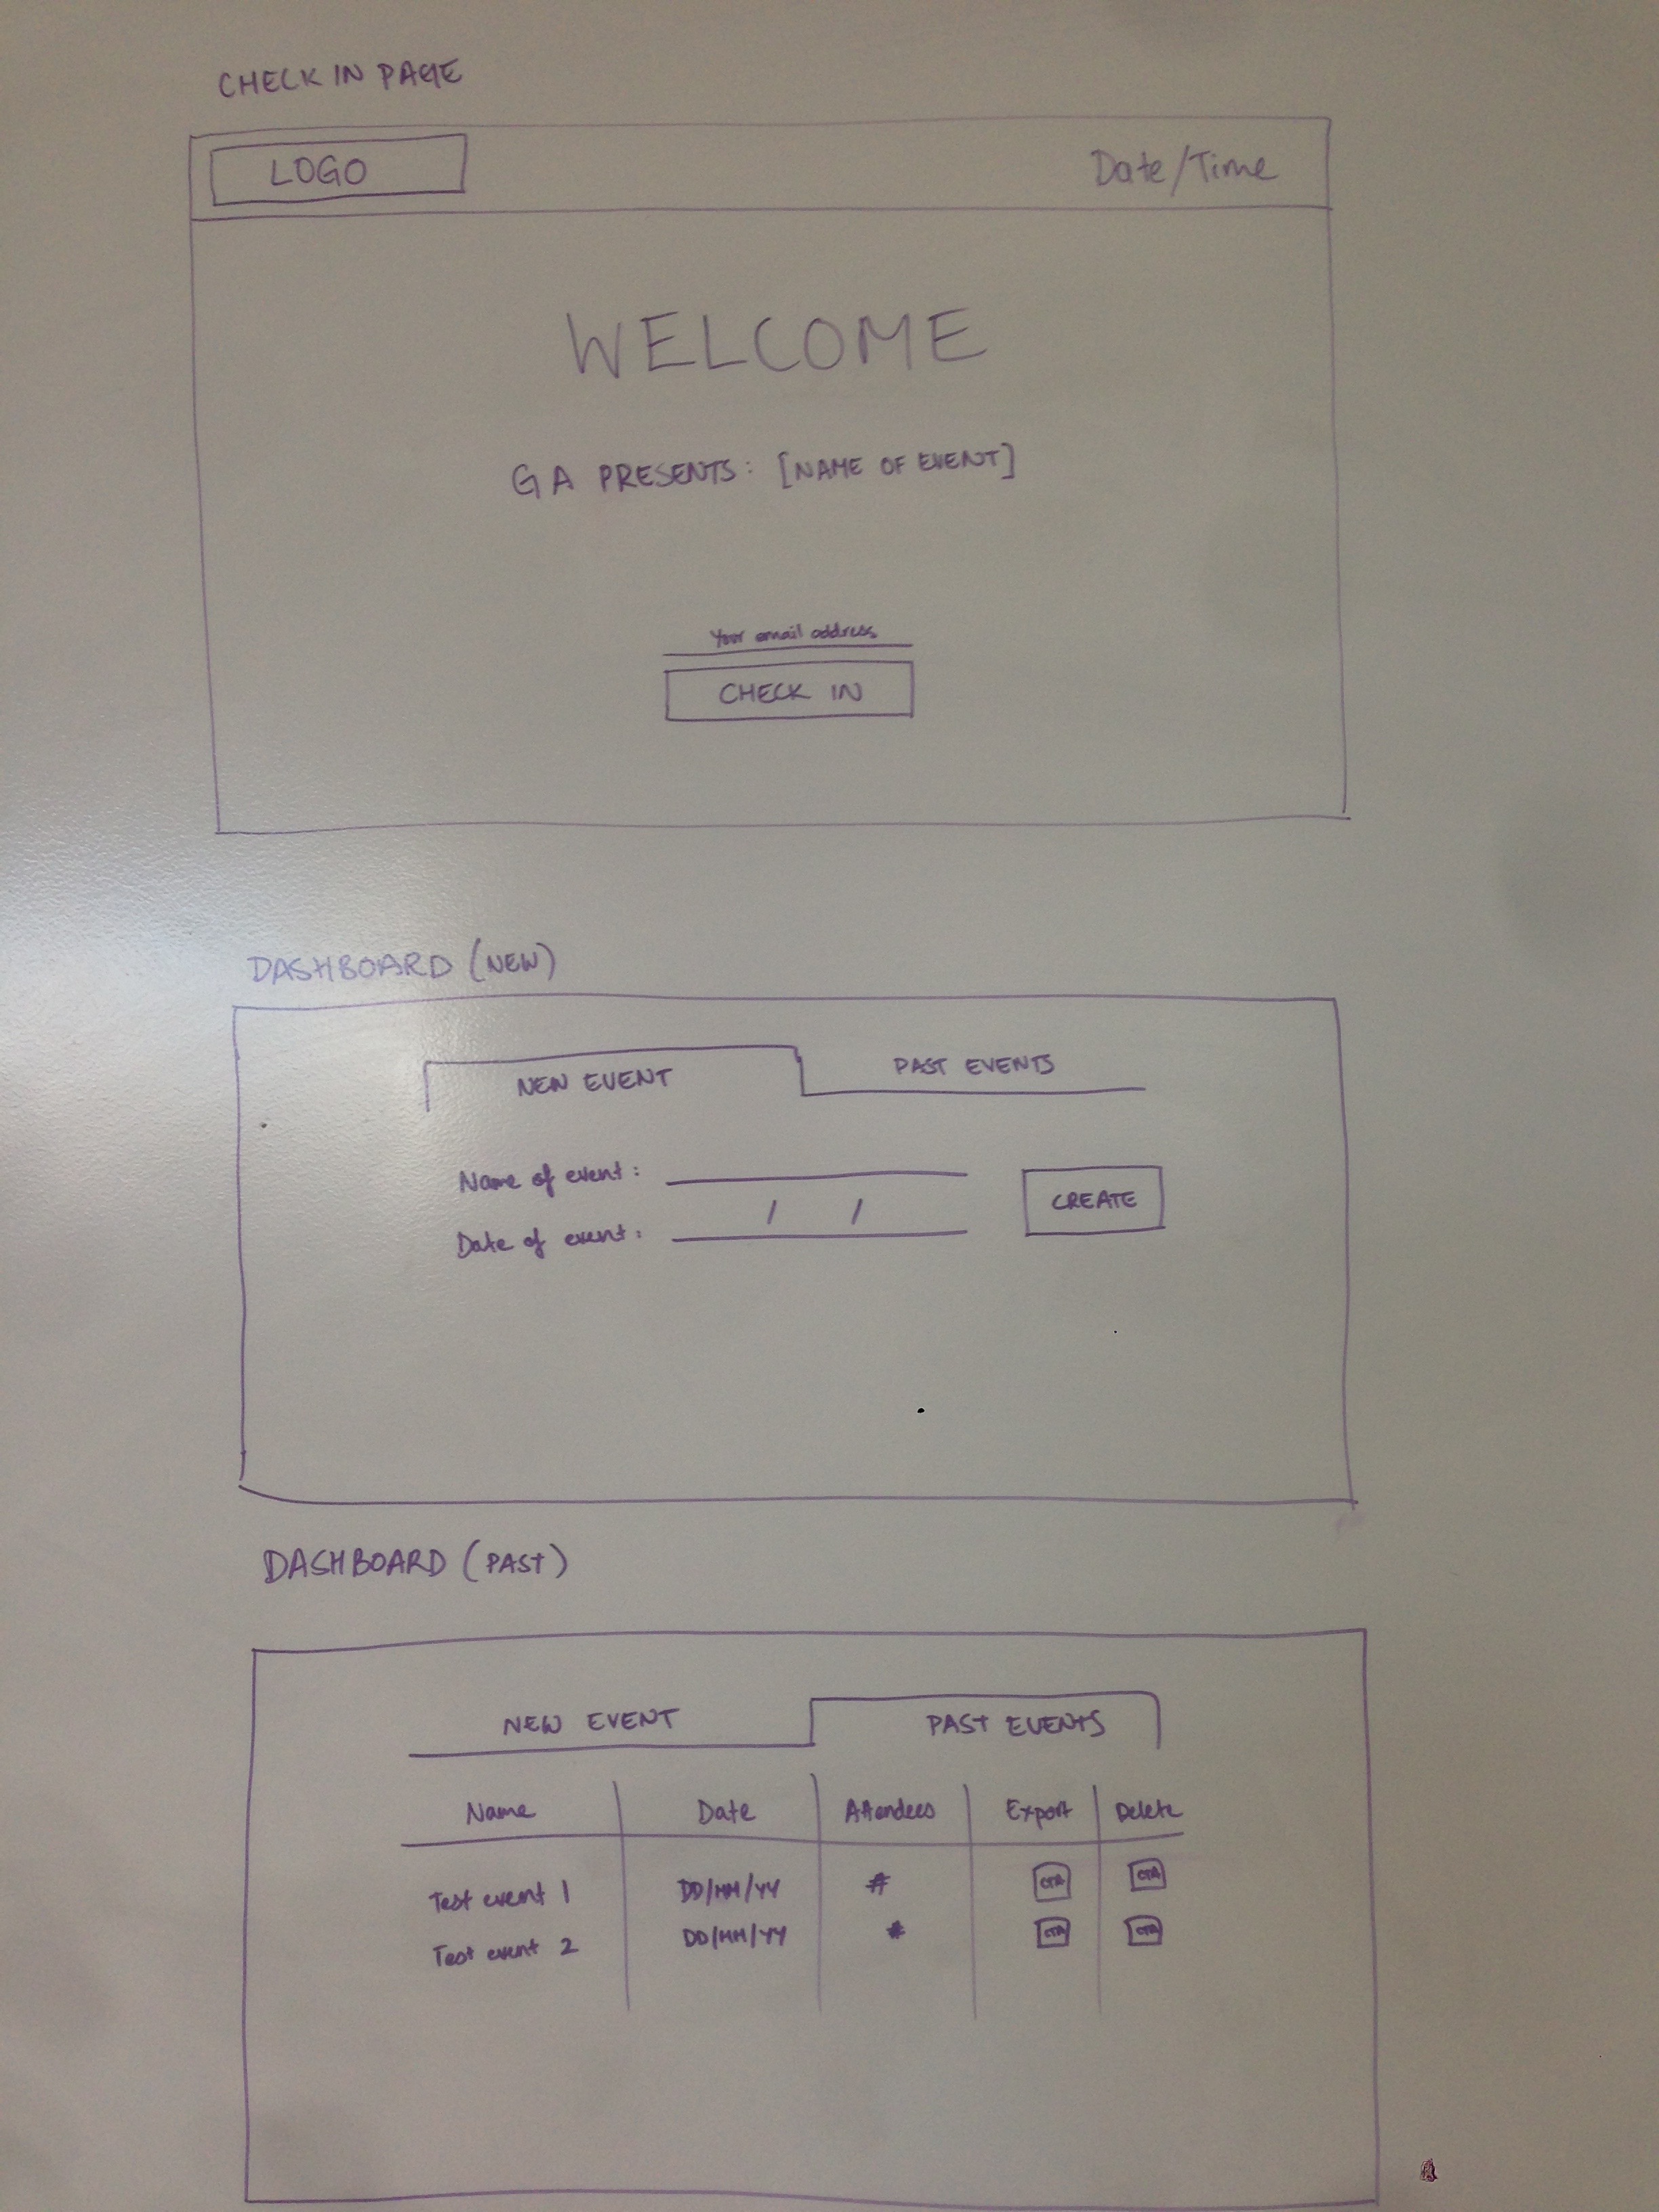 CHECK IN PAGE
LOGO
Date/Time
WELCOME
GA PRESENTS: [NAME OF EVENT]
Your email address
CHECK IN
DASHBOARD (NEW)
NEW EVENT
PAST EVENTS
Name of event:
/ /
Date of event:
CREATE
DASHBOARD (PAST)
NEW EVENT
PAST EVENTS
Name Date Attendees Export Delete
Test event 1 DD/MM/YY # CTA CTA
Test event 2 DD/MM/YY # CTA CTA